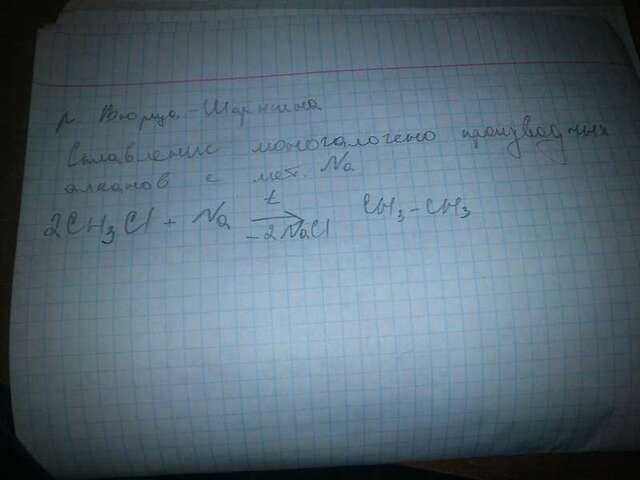 р. Вюрца - Шорыгина
Сплавление моногалогено производных
алканов с мет. Na
2CH₃Cl + Na t → -2NaCl CH₃-CH₃